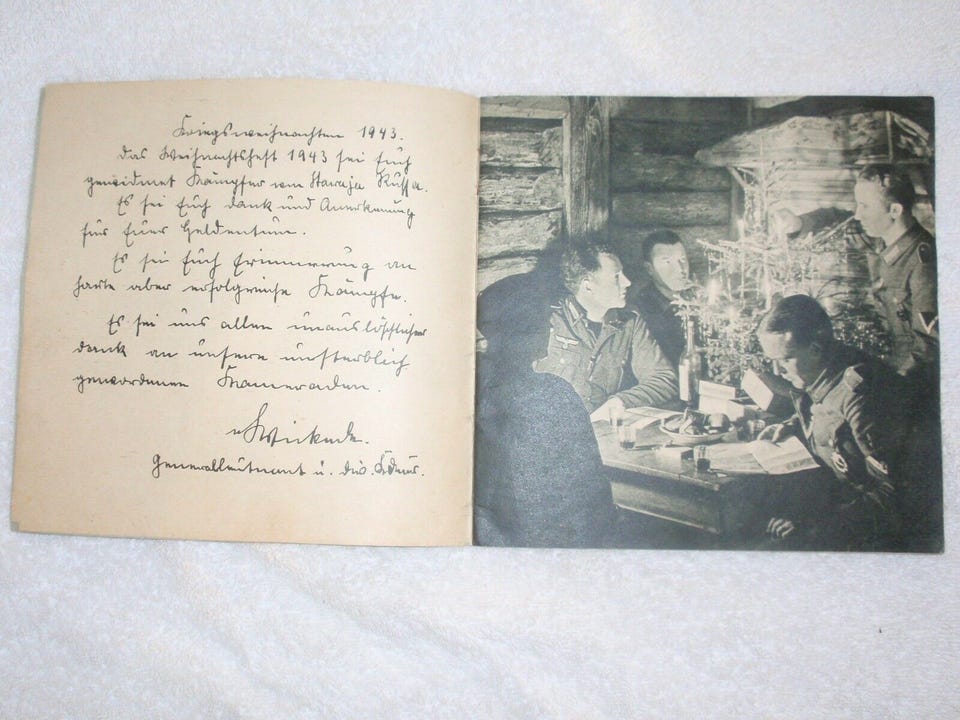 Kriegsweihnachten 1943.
Das Weihnachtsheft 1943 sei Euch
gewidmet Kämpfer von Staraja Russa.
Es sei Euch Dank und Anerkennung
für Euer Heldentum.
Es sei Euch Erinnerung an
harte aber erfolgreiche Kämpfe.
Es sei uns allen unauslöschlicher
Dank an unsere unsterblich
gewordenen Kameraden.
v Wickede.
Generalleutnant u. Div. Kdeur.